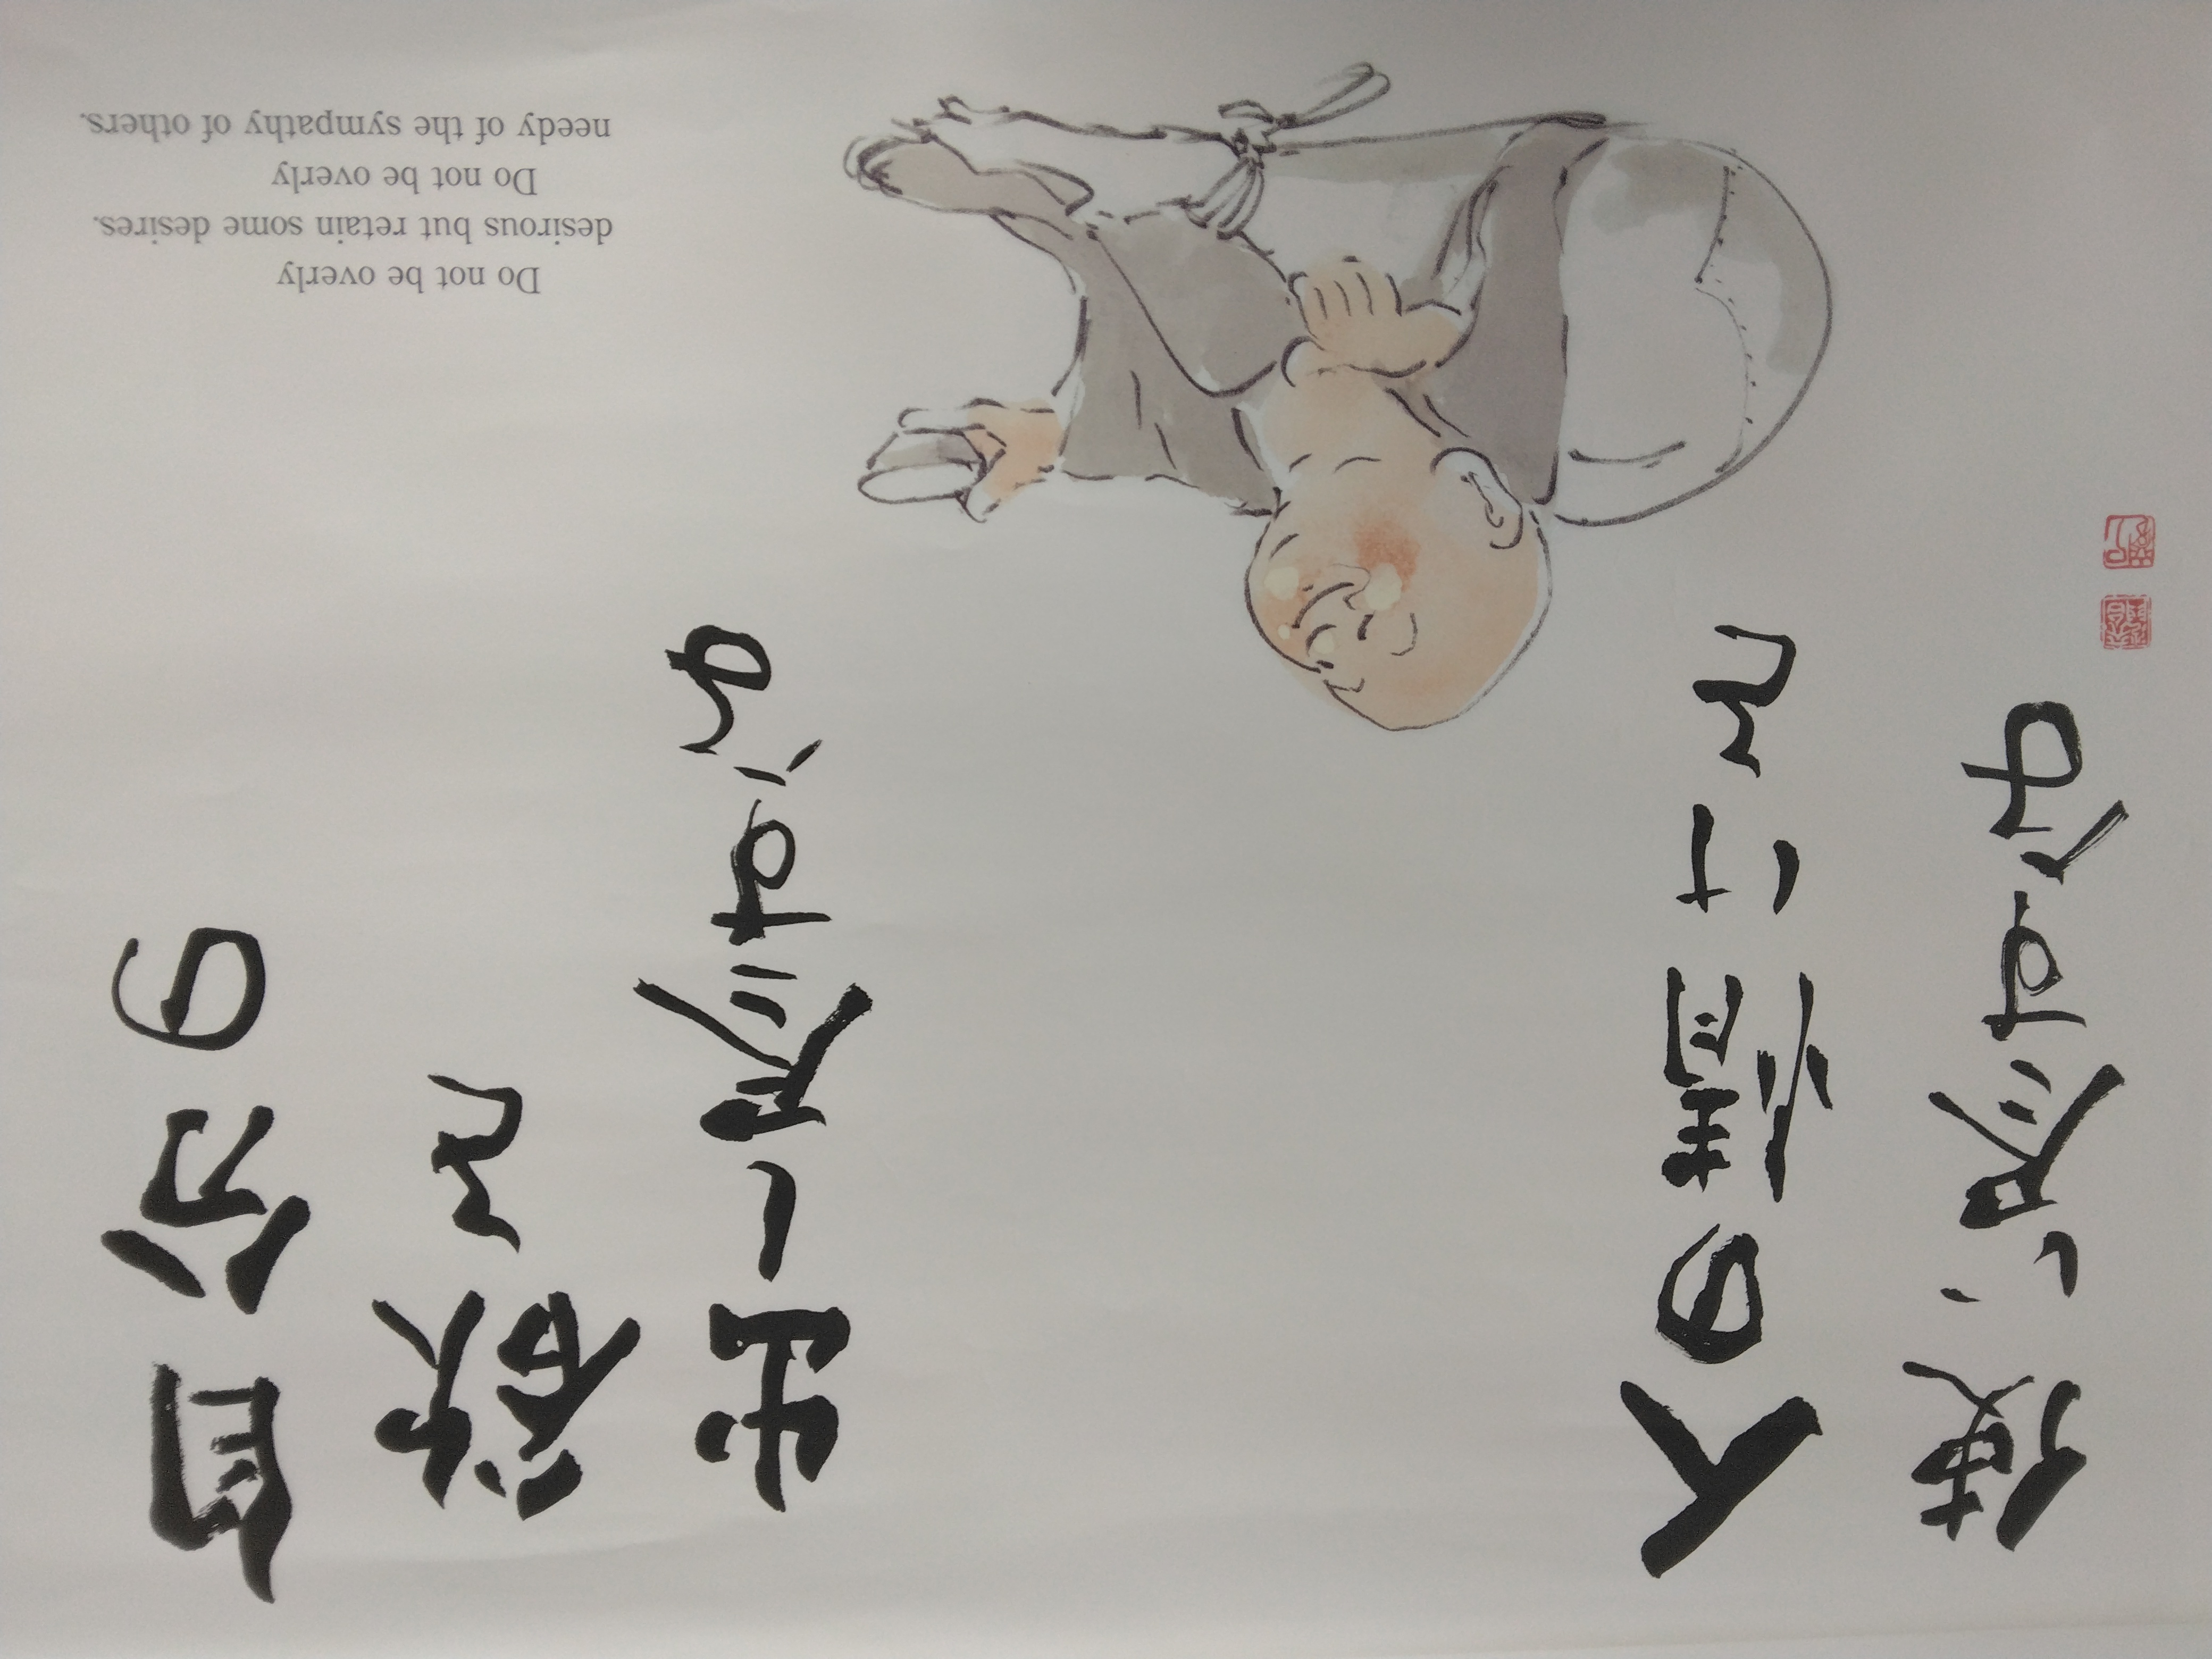 自分の
欲を
出し尽すな
人の情けを
使い尽すな
Do not be overly
desirous but retain some desires.
Do not be overly
needy of the sympathy of others.